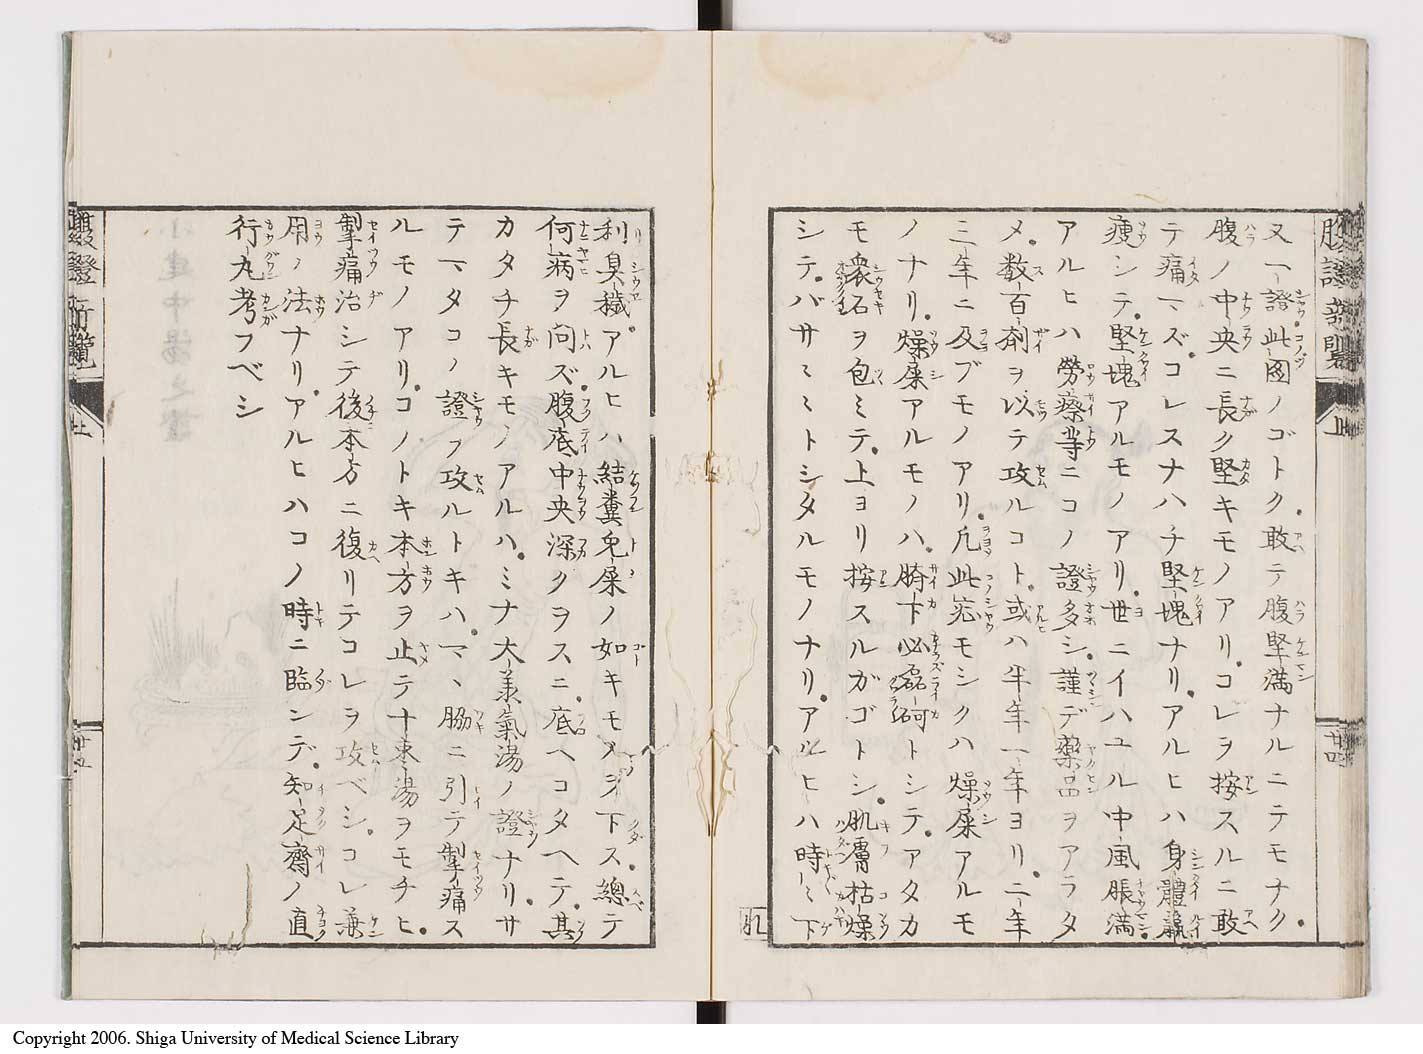 又一證此國ノゴトク敢テ腹堅満ナルニテモナク
腹ノ中央ニ長ク堅キモノアリコレヲ按スルニ敢
テ痛マズコレスナハチ堅塊ナリアルヒハ身體羸
痩シテ堅塊アルモノアリ世ニイハユル中風脹満
アルヒハ勞瘵等ニコノ證多シ謹デ藥品ヲアラタ
メ数百剤ヲ以テ攻ルコト或ハ半年一年ヨリ二年
三年ニ及ブモノアリ凡此症モシクハ燥屎アルモ
ノナリ燥屎アルモノハ臍下必磊砢トシテアタカ
モ衆石ヲ包ミテ上ヨリ按スルガゴトシ肌膚枯燥
シテバサミミトシタルモノナリアルヒハ時ミ下
利臭穢アルヒハ結糞兎屎ノ如キモノヲ下ス總テ
何病ヲ問ズ腹底中央深クヲスニ底ヘコタヘテ其
カタチ長キモノアルハミナ大羕氣湯ノ證ナリサ
テマタコノ證ヲ攻ルトキハママ脇ニ引テ掣痛ス
ルモノアリコノトキ本方ヲ止テ十棗湯ヲモチヒ
掣痛治シテ後本方ニ復リテコレヲ攻ベシコレ兼
用ノ法ナリアルヒハコノ時ニ臨ンデ知足齋ノ直
行丸考フベシ
腹證奇覽
上
廿四
廿五
Copyright 2006. Shiga University of Medical Science Library